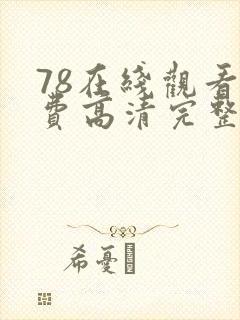 78在綫觀看
費高清完整
希憂